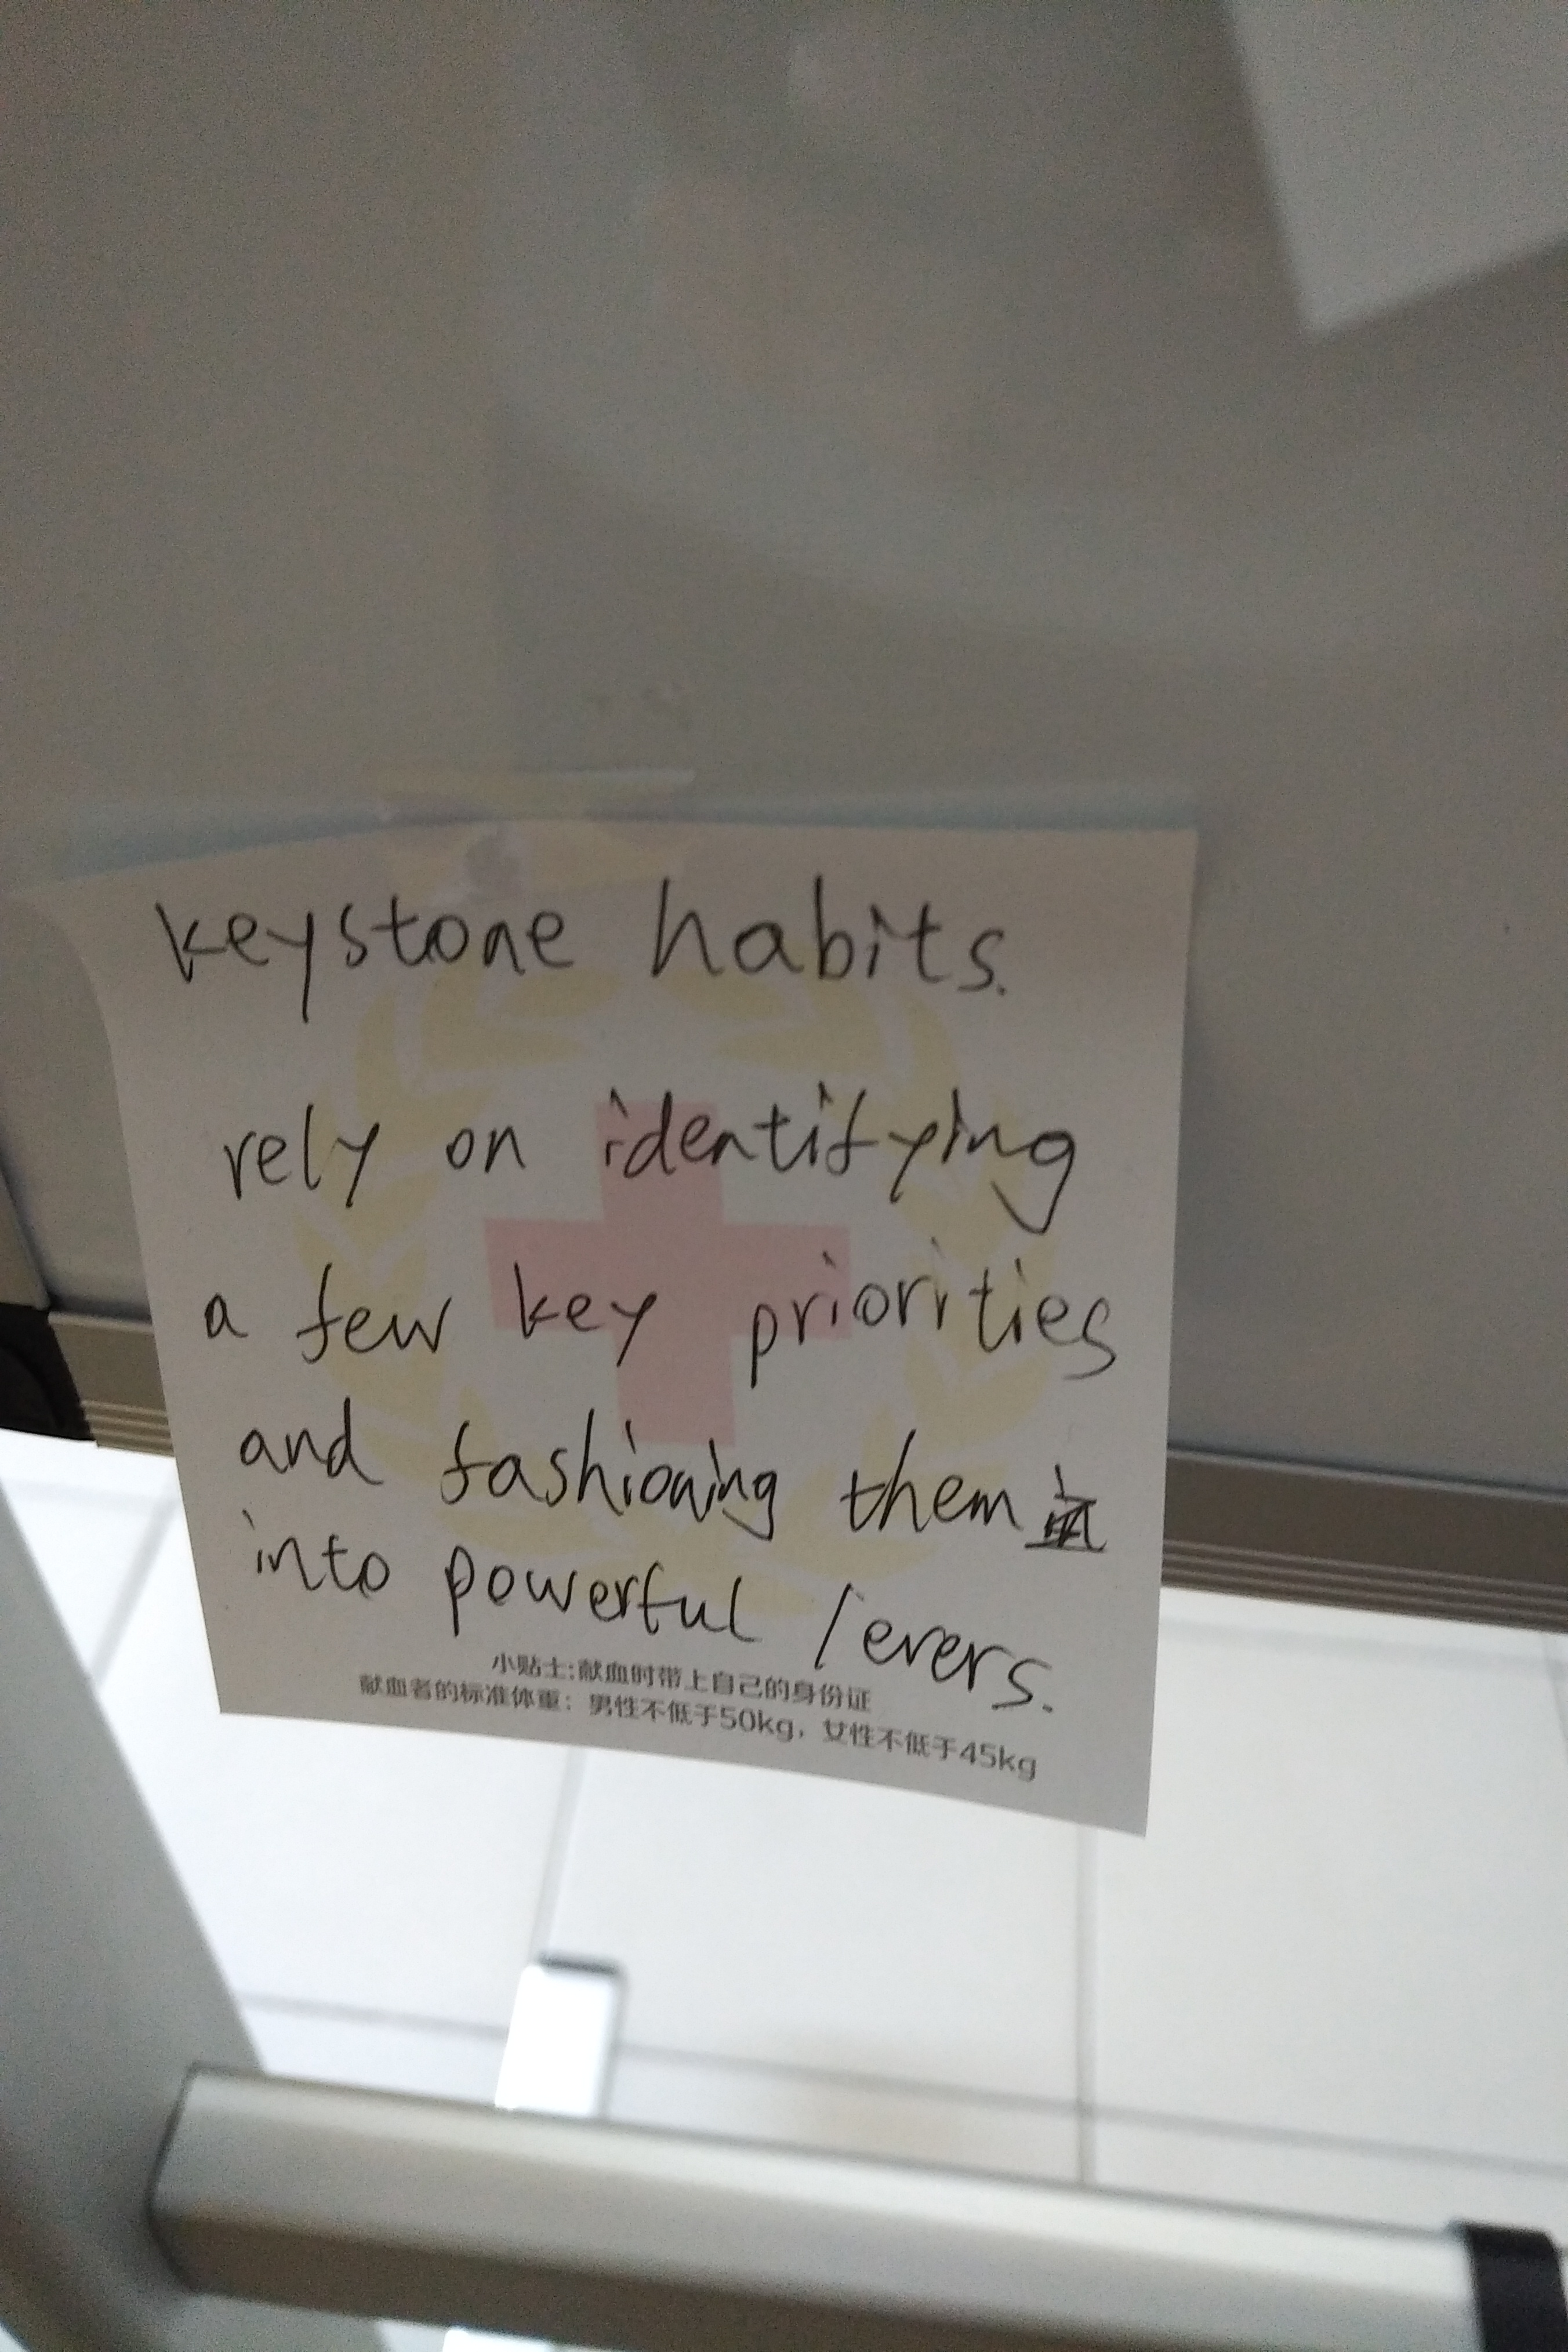 keystone habits.
rely on identifying
a few key priorities
and fashioning them
into powerful levers.
小贴士:献血时带上自己的身份证
献血者的标准体重：男性不低于50kg，女性不低于45kg